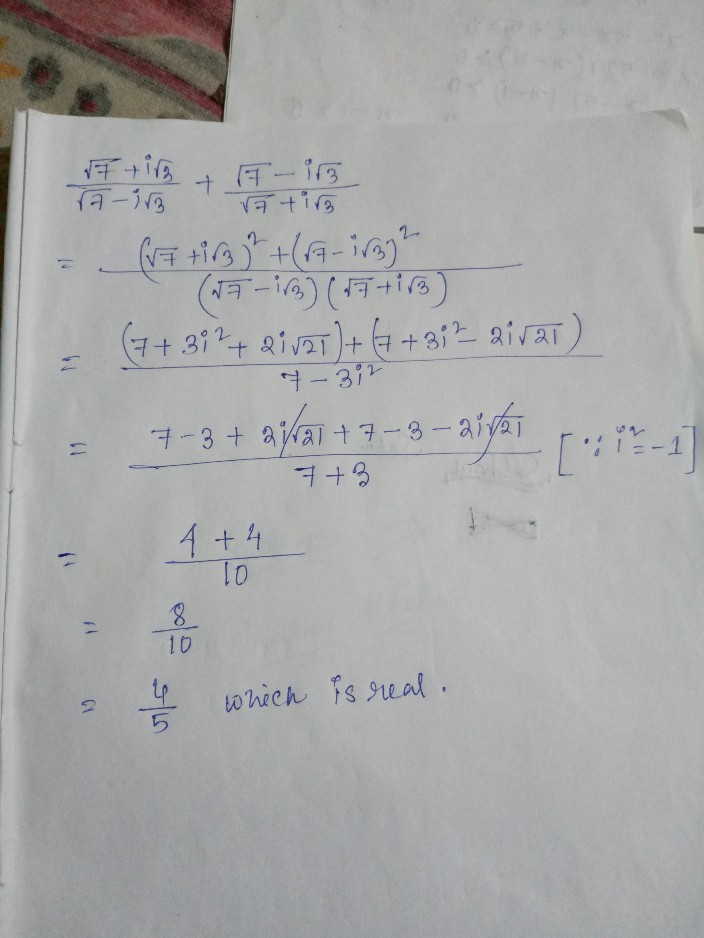 (√7 + i√3)/(√7 - i√3) + (√7 - i√3)/(√7 + i√3)
= ((√7 + i√3)² + (√7 - i√3)²)/((√7 - i√3)(√7 + i√3))
= ((7 + 3i² + 2i√21) + (7 + 3i² - 2i√21))/(7 - 3i²)
= (7 - 3 + 2i√21 + 7 - 3 - 2i√21)/(7 + 3) [∵ i² = -1]
= (4 + 4)/10
= 8/10
= 4/5 which is real.